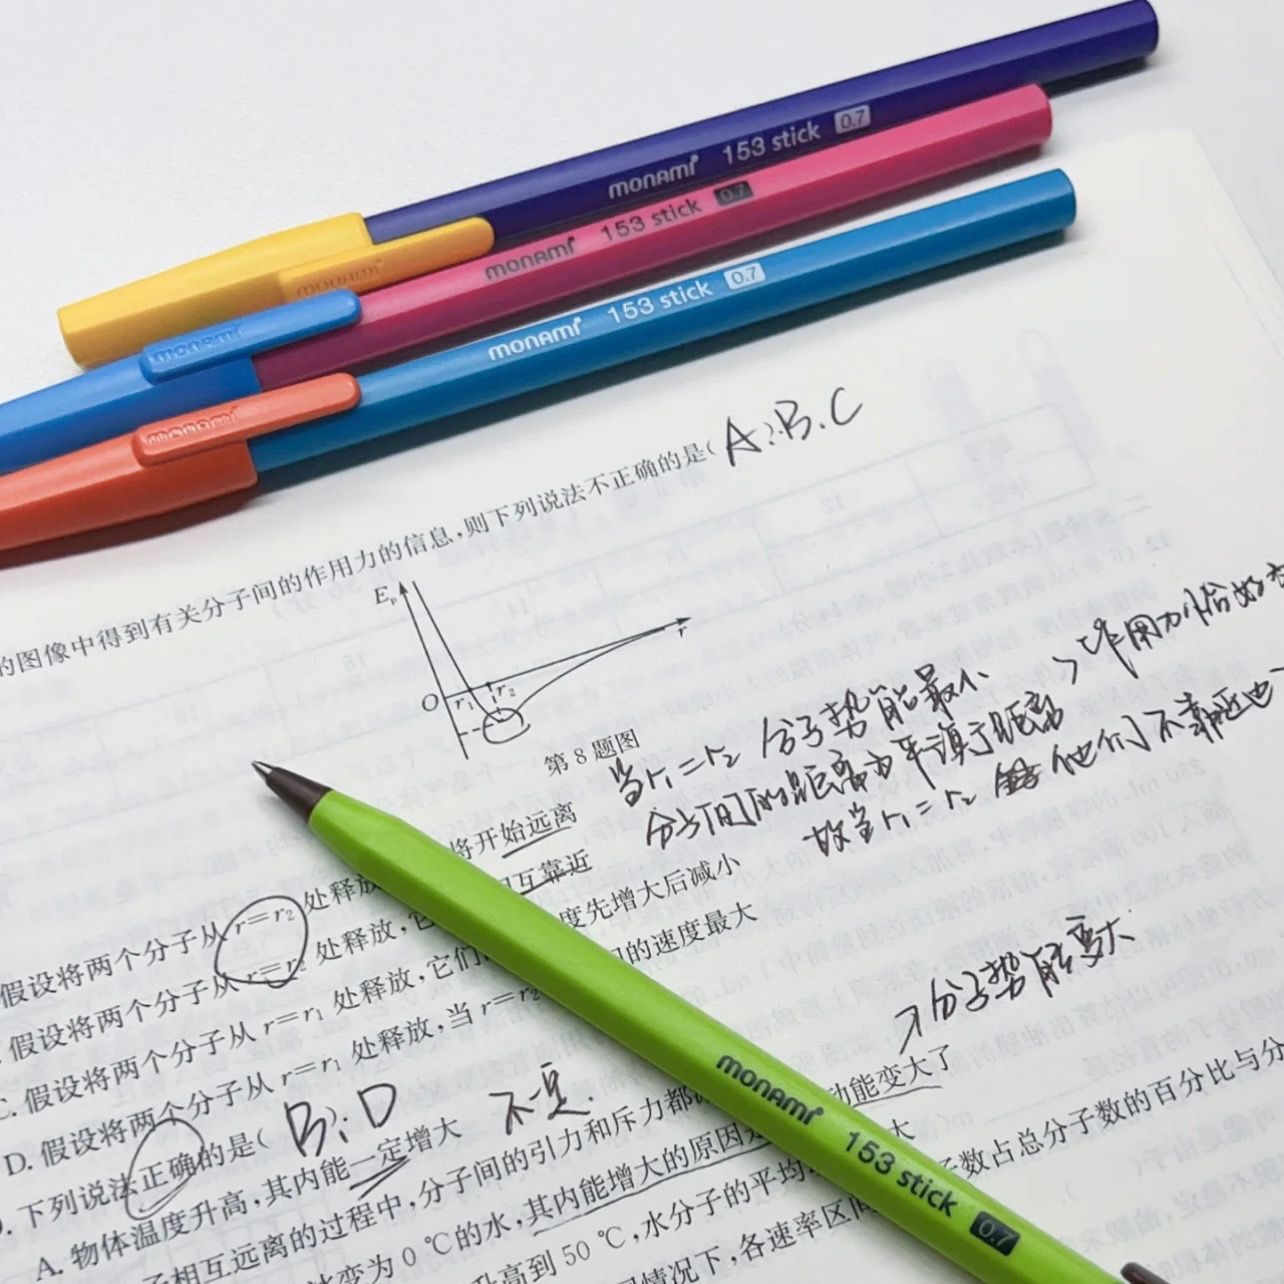 monami 153 stick 0.7
monami 153 stick 0.7
monami 153 stick 0.7
monami
monami
monami
的图像中得到有关分子间的作用力的信息,则下列说法不正确的是( A.B.C
Eₚ
O r₁ r₂ r
第8题图
当r₁=r₂ 分子势能最小 > 作用力恰好
分子间的距离为平衡距离
故当r₁=r₂ 他们不靠近也
假设将两个分子从 r=r₂ 处释放 将开始远离
假设将两个分子从 处释放,它 互靠近
C. 假设将两个分子从 r=r₁ 处释放,它们 度先增大后减小
D. 假设将两个分子从 r=r₁ 处释放,当 r=r₂ 的速度最大
→分子势能变大
下列说法正确的是( B;D
A. 物体温度升高,其内能一定增大 不一定.
子相互远离的过程中,分子间的引力和斥力都
变为 0 ℃的水,其内能增大的原因是 动能变大了
升高到 50 ℃,水分子的平均 大
情况下,各速率区间 子数占总分子数的百分比与分
monami 153 stick 0.7